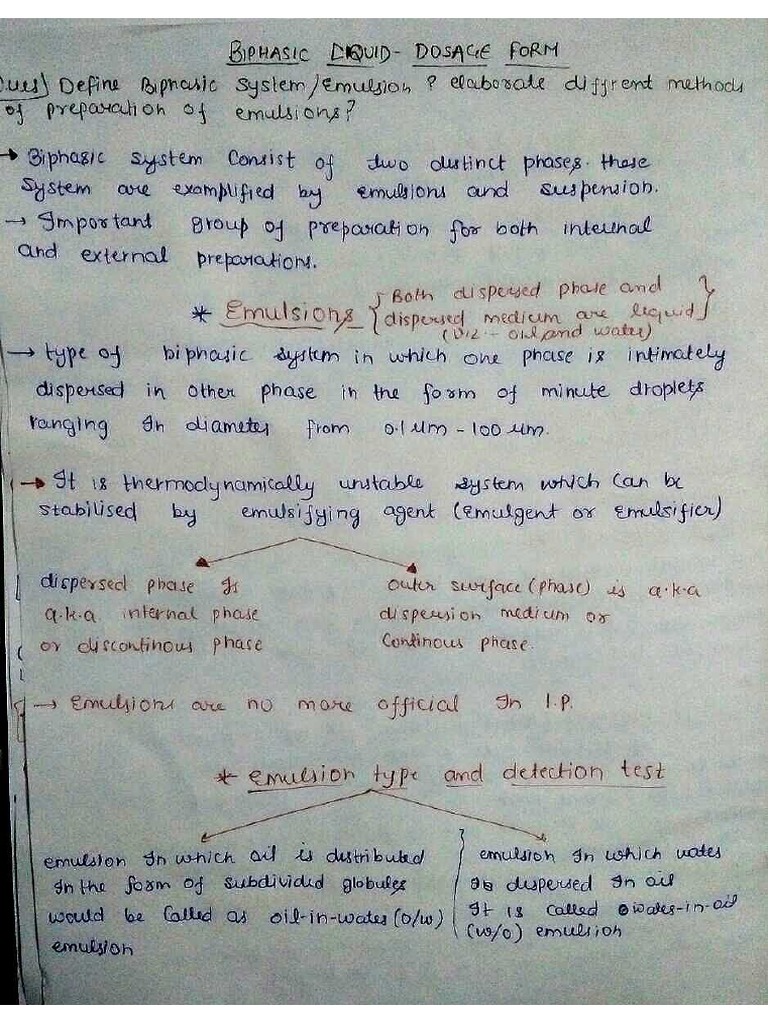 BIPHASIC LIQUID- DOSAGE FORM
Ques) Define Biphasic System/Emulsion ? elaborate diffrent methods
of preparation of emulsions?
→ Biphasic system Consist of two distinct phases. these
System are examplified by emulsions and suspension.
→ Important group of preparation for both internal
and external preparations.
* Emulsions { Both dispersed phase and
dispersed medium are liquid }
(Viz - oil and water)
→ type of biphasic system in which one phase is intimately
dispersed in other phase in the form of minute droplets
ranging in diameter from 0.1 um - 100 um.
→ It is thermodynamically unstable system which can be
stabilised by emulsifying agent (emulgent or emulsifier)
dispersed phase is
a.k.a internal phase
or discontinous phase
outer surface (phase) is a.k.a
dispersion medium or
Continous phase.
→ Emulsions are no more official in I.P.
* emulsion type and detection test
emulsion in which oil is distributed
in the form of subdivided globules
would be called as oil-in-water (o/w)
emulsion
emulsion in which water
is dispersed in oil
It is called water-in-oil
(w/o) emulsion